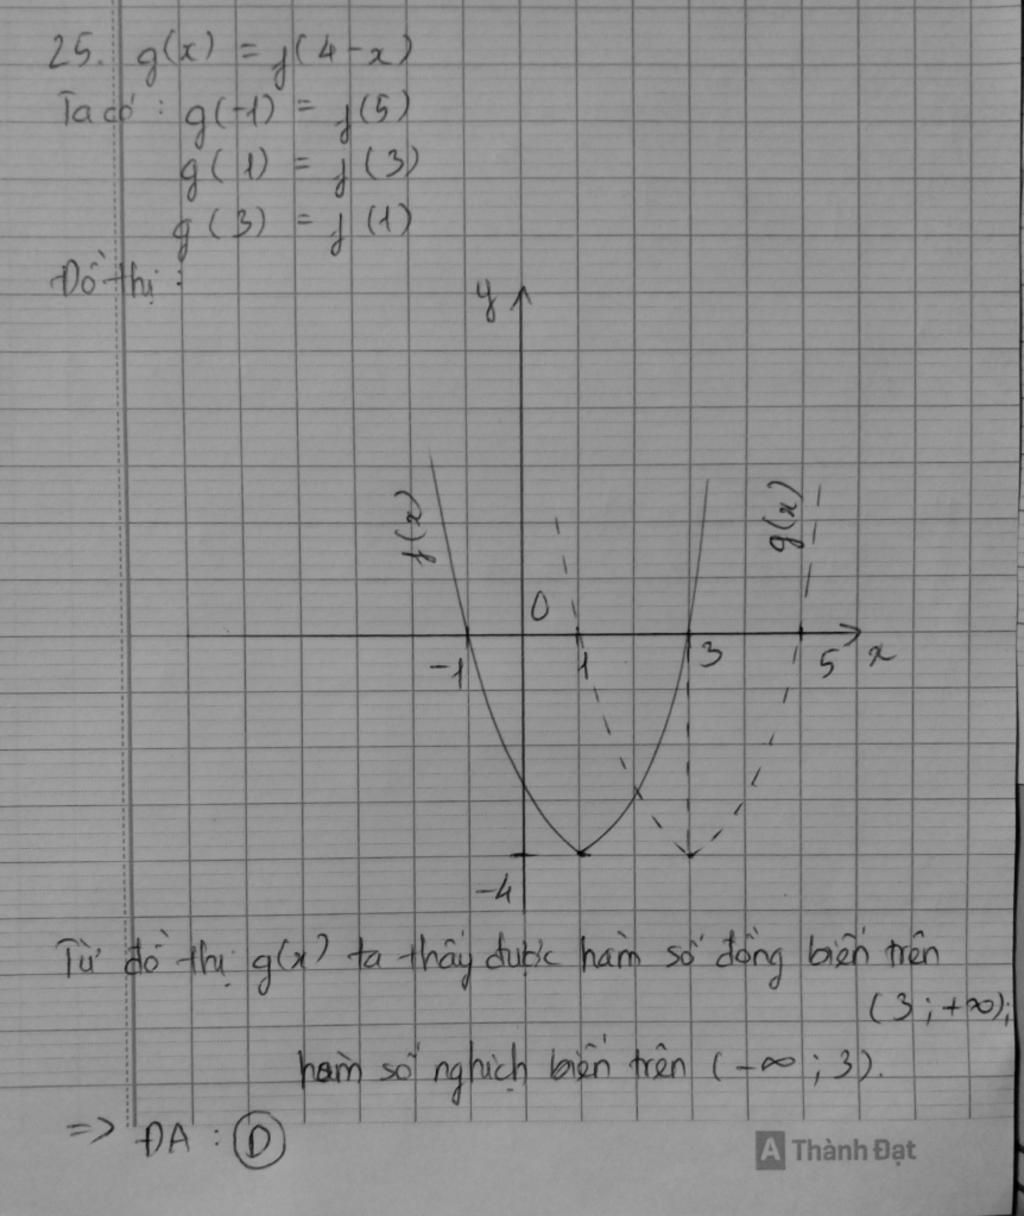 25. g(x) = f(4-x)
Ta có : g(-1) = f(5)
g(1) = f(3)
g(3) = f(1)
Đồ thị :
y
f(x)
g(x)
0
-1
1
3
5
x
-4
Từ đồ thị g(x) ta thấy được hàm số đồng biến trên
(3;+∞);
hàm số nghịch biến trên (-∞;3).
=> ĐA : D
A Thành Đạt